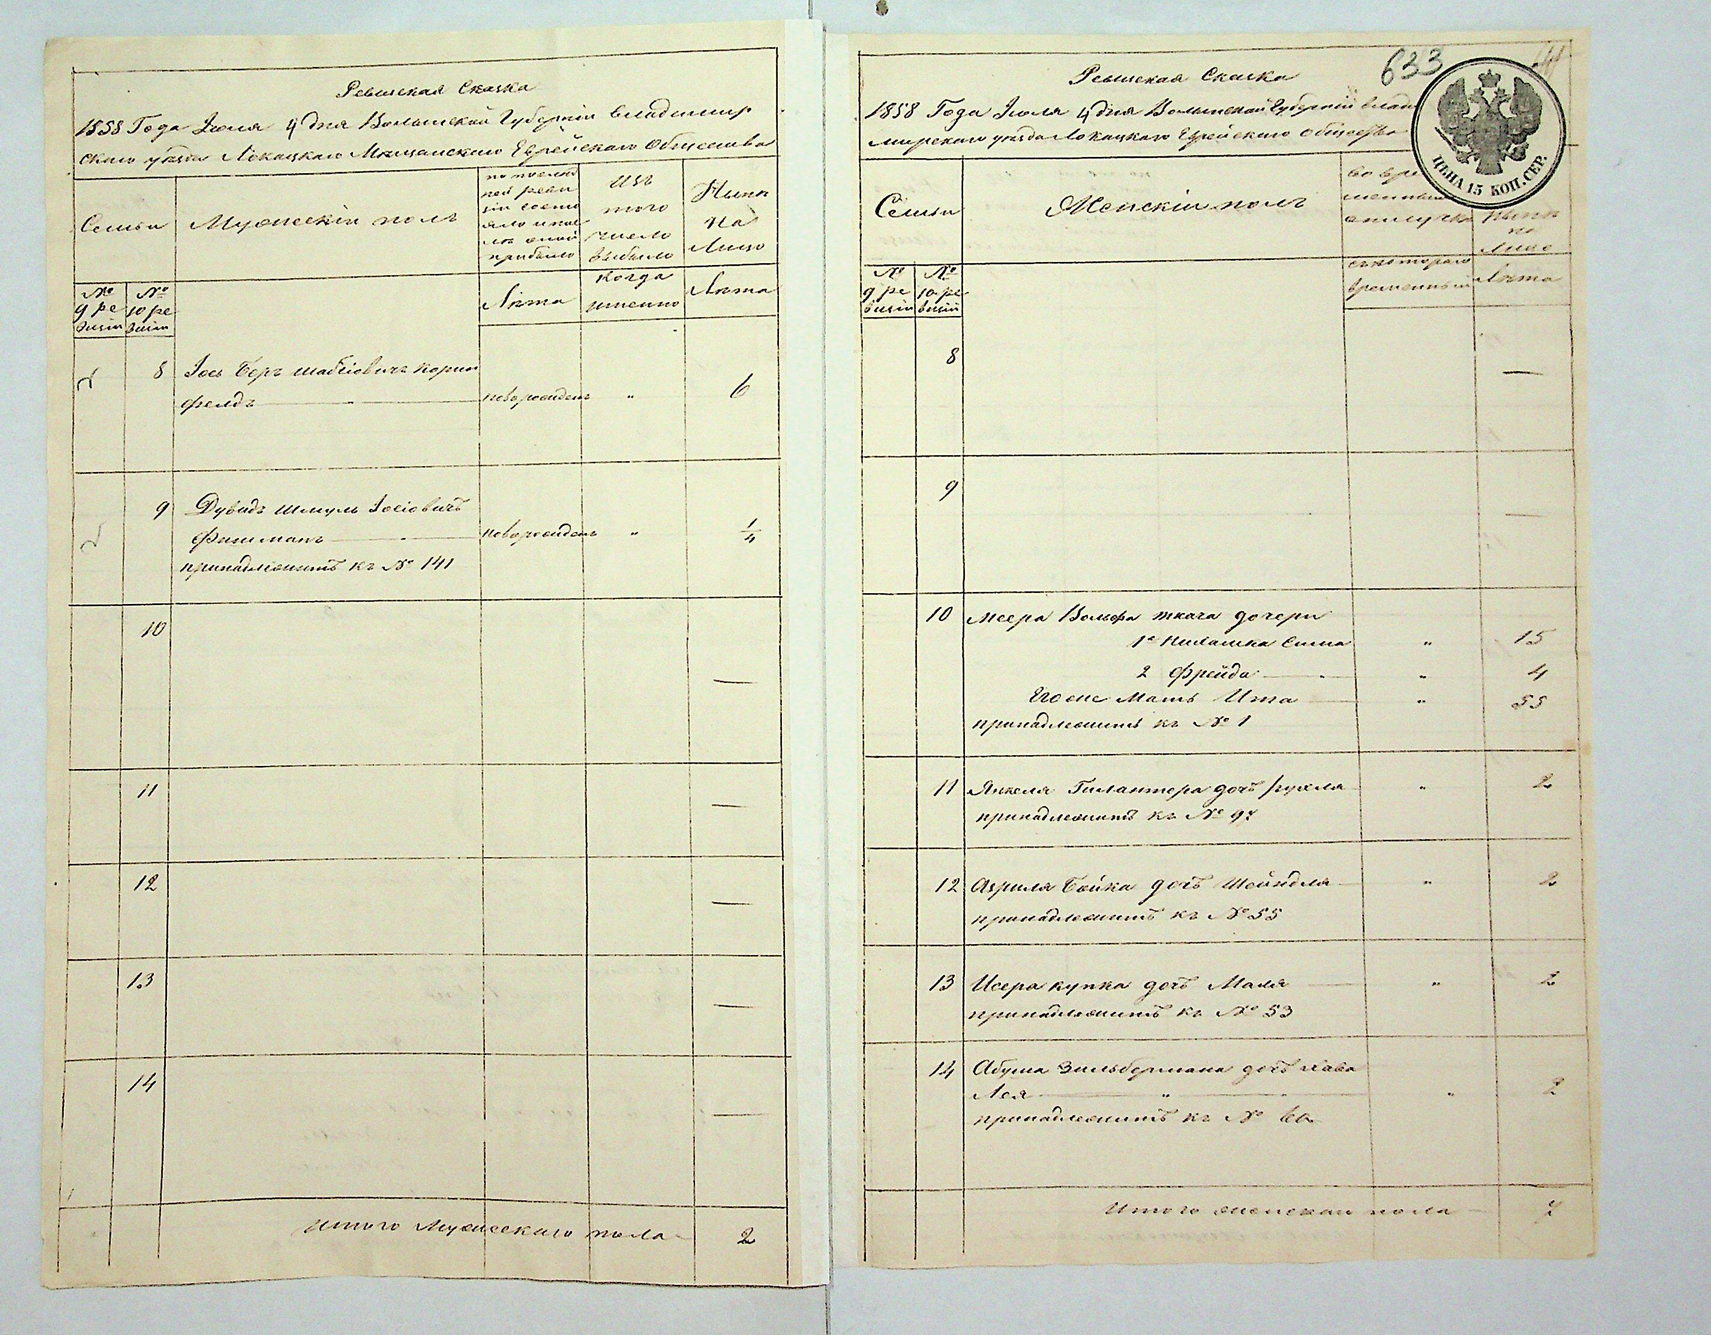 Ревизская Сказка
1858 Года Июля 4 дня Волынской Губернии Владимир
скаго уезда Локацкаго Мещанскаго Еврейскаго Общества
Семьи
Мужескій полъ
по послед
ней реви
зіи состо
яло и пос
ле оной
прибыло
Изъ
того
число
выбыло
Ныне
на
Лицо
№
9 ре
визіи
№
10 ре
визіи
Лета
когда
именно
Лета
8 Іось Беръ Шабсіовичъ Корин
фелдъ новорожденъ " 6
9 Дувидъ Шмуль Іосіовичъ
Фишманъ новорожденъ " 1/4
принадлежитъ къ № 141
10 —
11 —
12 —
13 —
14 —
Итого Мужескаго пола 2
633
Ревизская Сказка
1858 Года Июля 4 дня Волынской Губерніи Влади
мирскаго уезда Локацкаго Еврейскаго Общества
ЦѢНА 15 КОП. СЕР.
Семьи
Женскій полъ
во вре
менной
отлучке
Ныне
на
Лицо
№
9 ре
визіи
№
10 ре
визіи
съ котораго
времени
Лета
8 —
9 —
10 Меера Вольфа Ткача дочери
1я Сима " 15
2 Фрейда " 4
Его же Мать Ита " 55
принадлежитъ къ № 1
11 Янкеля Гилантера дочь Рухля " 2
принадлежитъ къ № 97
12 Азриля Бойка дочь Шейндля " 2
принадлежитъ къ № 55
13 Исера Купка дочь Маля " 2
принадлежитъ къ № 53
14 Абуша Зильбермана дочь Хава
Лея " " 2
принадлежитъ къ №
Итого женскаго пола 7